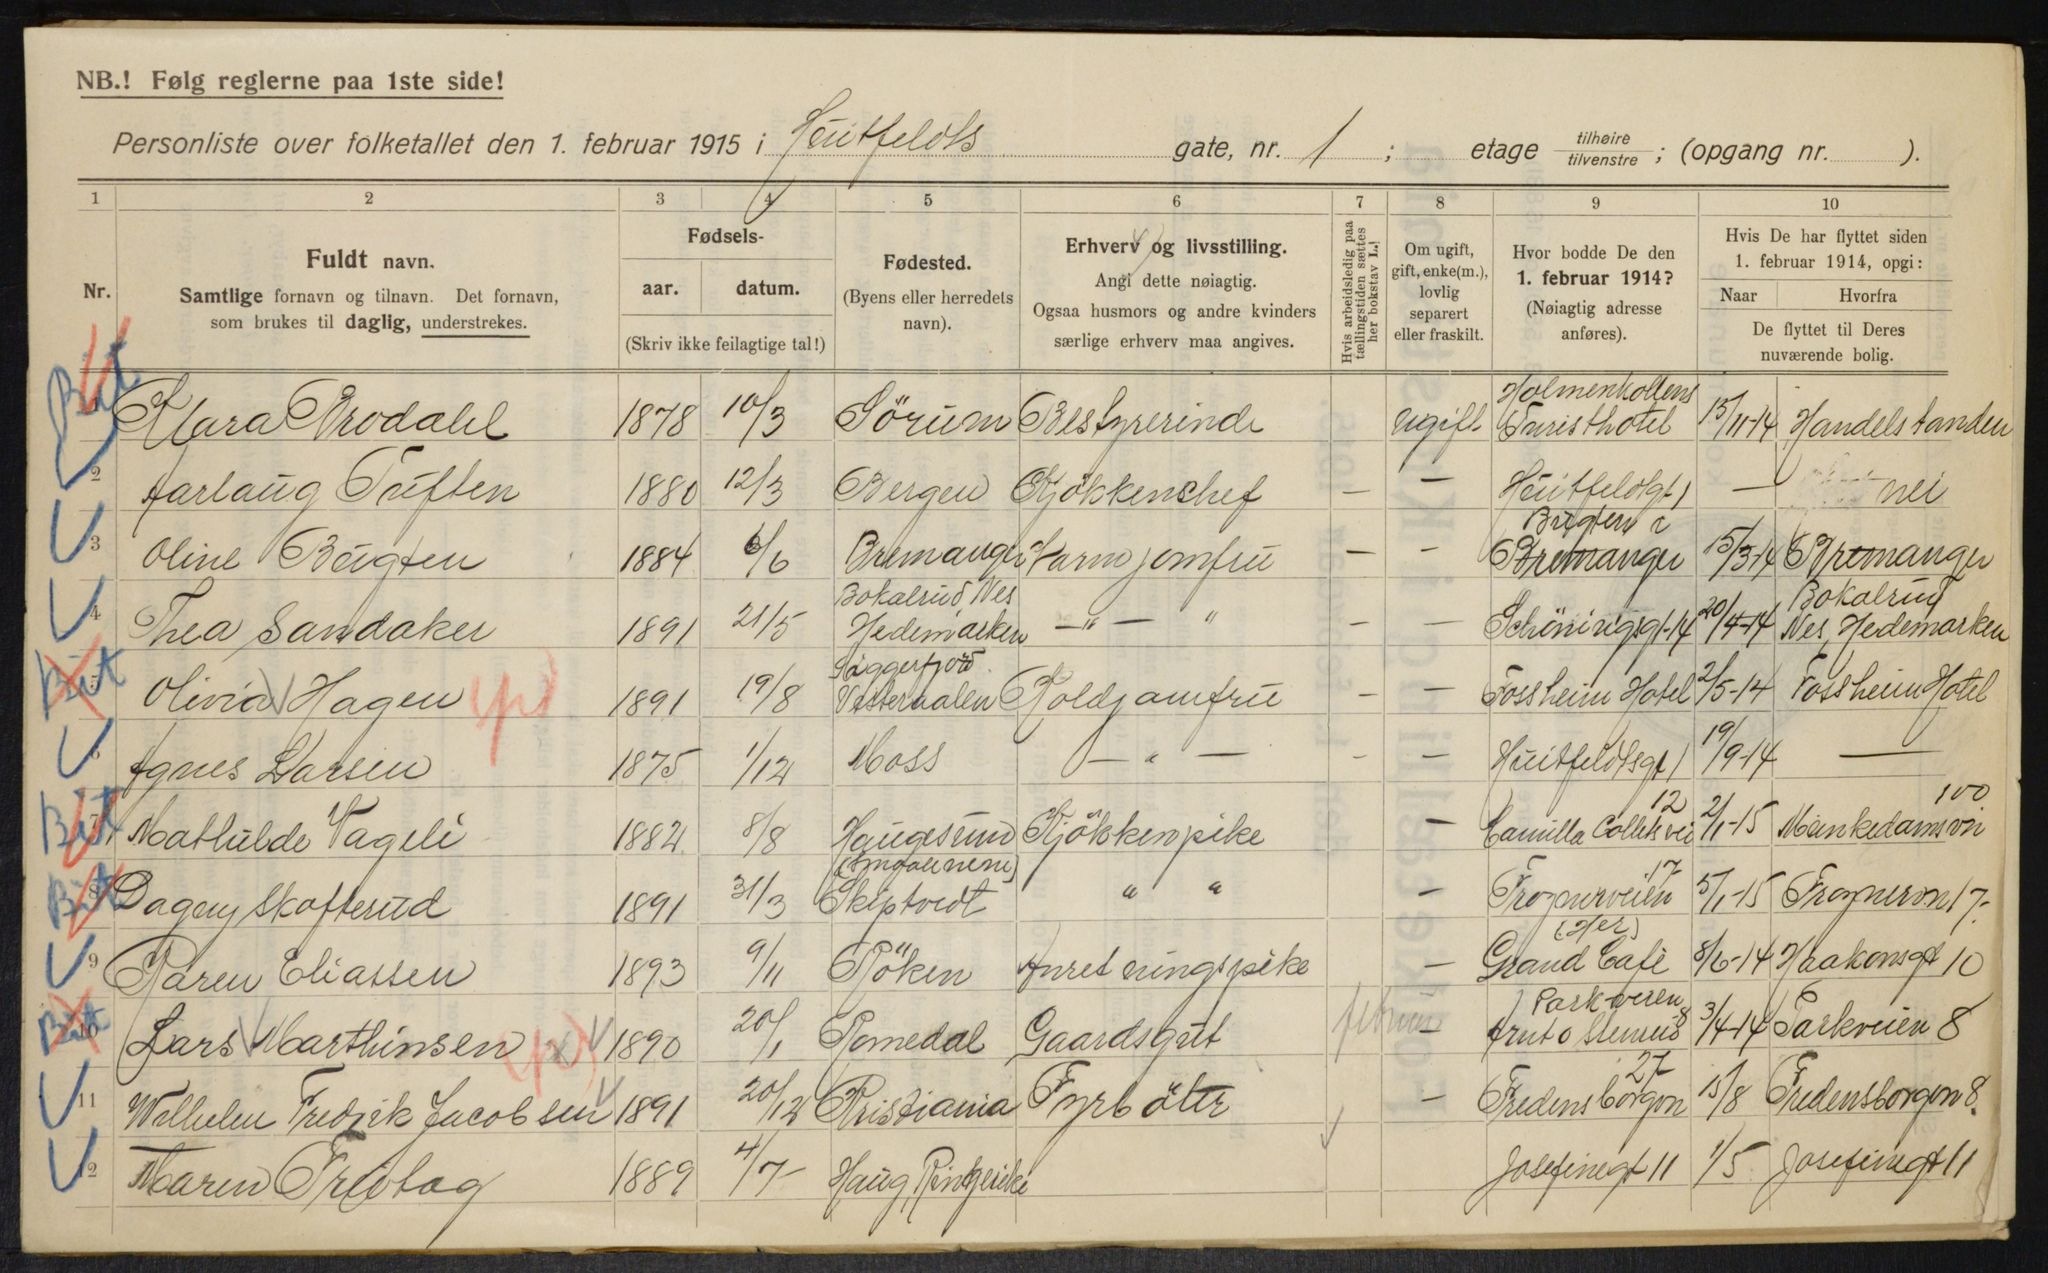 NB.! Følg reglerne paa 1ste side!
Personliste over folketallet den 1. februar 1915 i Heitfeldts gate, nr. 1 ; etage tilhøire / tilvenstre ; (opgang nr. ).
1 2 3 4 5 6 7 8 9 10
Nr.
Fuldt navn.
Samtlige fornavn og tilnavn. Det fornavn,
som brukes til daglig, understrekes.
Fødsels-
aar. datum.
(Skriv ikke feilagtige tal!)
Fødested.
(Byens eller herredets
navn).
Erhverv og livsstilling.
Angi dette nøiagtig.
Ogsaa husmors og andre kvinders
særlige erhverv maa angives.
Hvis arbeidsledig paa
tællingstiden sættes
her bokstav L.!
Om ugift,
gift, enke(m.),
lovlig
separert
eller fraskilt.
Hvor bodde De den
1. februar 1914?
(Nøiagtig adresse
anføres).
Hvis De har flyttet siden
1. februar 1914, opgi:
Naar Hvorfra
De flyttet til Deres
nuværende bolig.
1 Klara Brodahl 1878 10/3 Sörum Bestyrerinde ugift Holmenkollens Turisthotel 15/11-14 Handelstanden
2 Aarlaug Tuften 1880 12/3 Bergen Kjökkenchef — — Heitfeldtgt 1 — nei
3 Oline Bugten 1884 6/6 Bremanger Varmjomfru — — Bugten i Bremanger 15/3-14 Bremanger
4 Thea Sandaker 1891 21/5 Bokalrud Nes Hedemarken — " — " — — Schöningsgt-14 20/4-14 Bokalrud Nes, Hedemarken
5 Olivia Hagen 1891 19/8 Vesteraalen Koldjomfru — — Fossheim Hotel 2/5-14 Fossheim Hotel
6 Agnes Larsen 1875 1/12 Moss — " — — — Huitfeldtsgt 1 19/9-14 —
7 Mathilde Vageli 1882 8/8 Haugesund Kjökkenpike — Camilla Colletsvei 12 2/1-15 Munkedamsvn 100
8 Dagny Skofterud 1891 31/3 Skiptvedt " " — Frognerveien 17 5/1-15 Frognervn 17.
9 Karen Eliassen 1893 9/11 Röken Anretningspike — Grand Café 8/6-14 Haakonsgt 10
10 Lars Marthinsen 1890 20/1 Romedal Gaardsgut — Parkveien 8 3/4-14 Parkveien 8
11 Wilhelm Fredrik Jacobsen 1891 20/12 Kristiania Fyrböter — Fredensborgvn 27 15/8 Fredensborgvn 8.
12 Maren Freitag 1889 4/7 Haug, Ringerike Josefinegt 11 1/5 Josefinegt 11